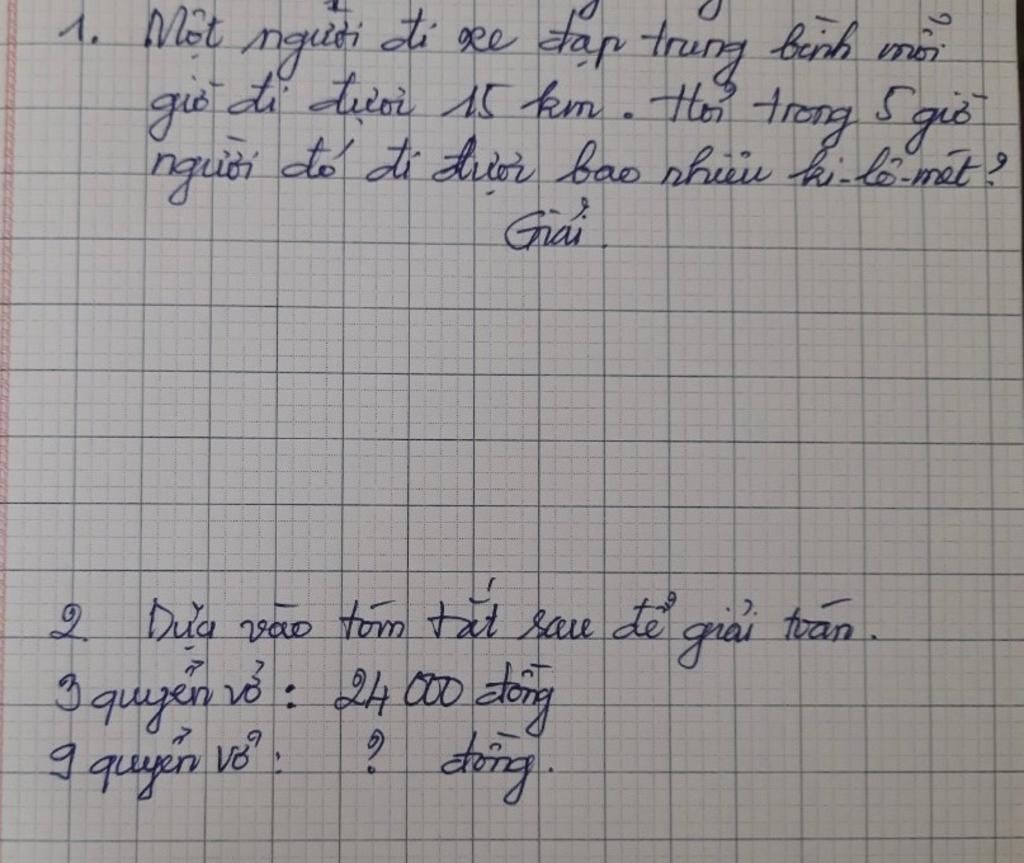 1. Một người đi xe đạp trung bình mỗi
giờ đi được 15 km. Hỏi trong 5 giờ
người đó đi được bao nhiêu ki-lô-mét?
Giải
2. Dựa vào tóm tắt sau để giải toán.
3 quyển vở: 24 000 đồng
9 quyển vở: ? đồng.